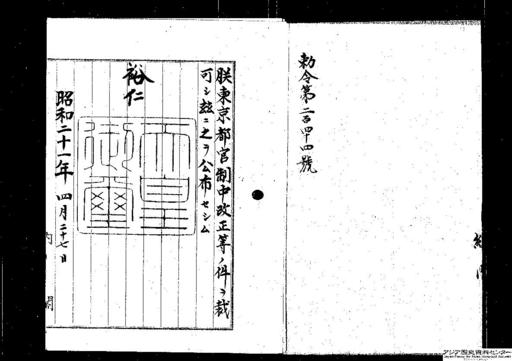 勅令第二百四十四號
朕東京都官制中改正等ノ件ヲ裁
可シ玆ニ之ヲ公布セシム
裕仁
天皇御璽
昭和二十一年四月二十七日
内閣
アジア歴史資料センター